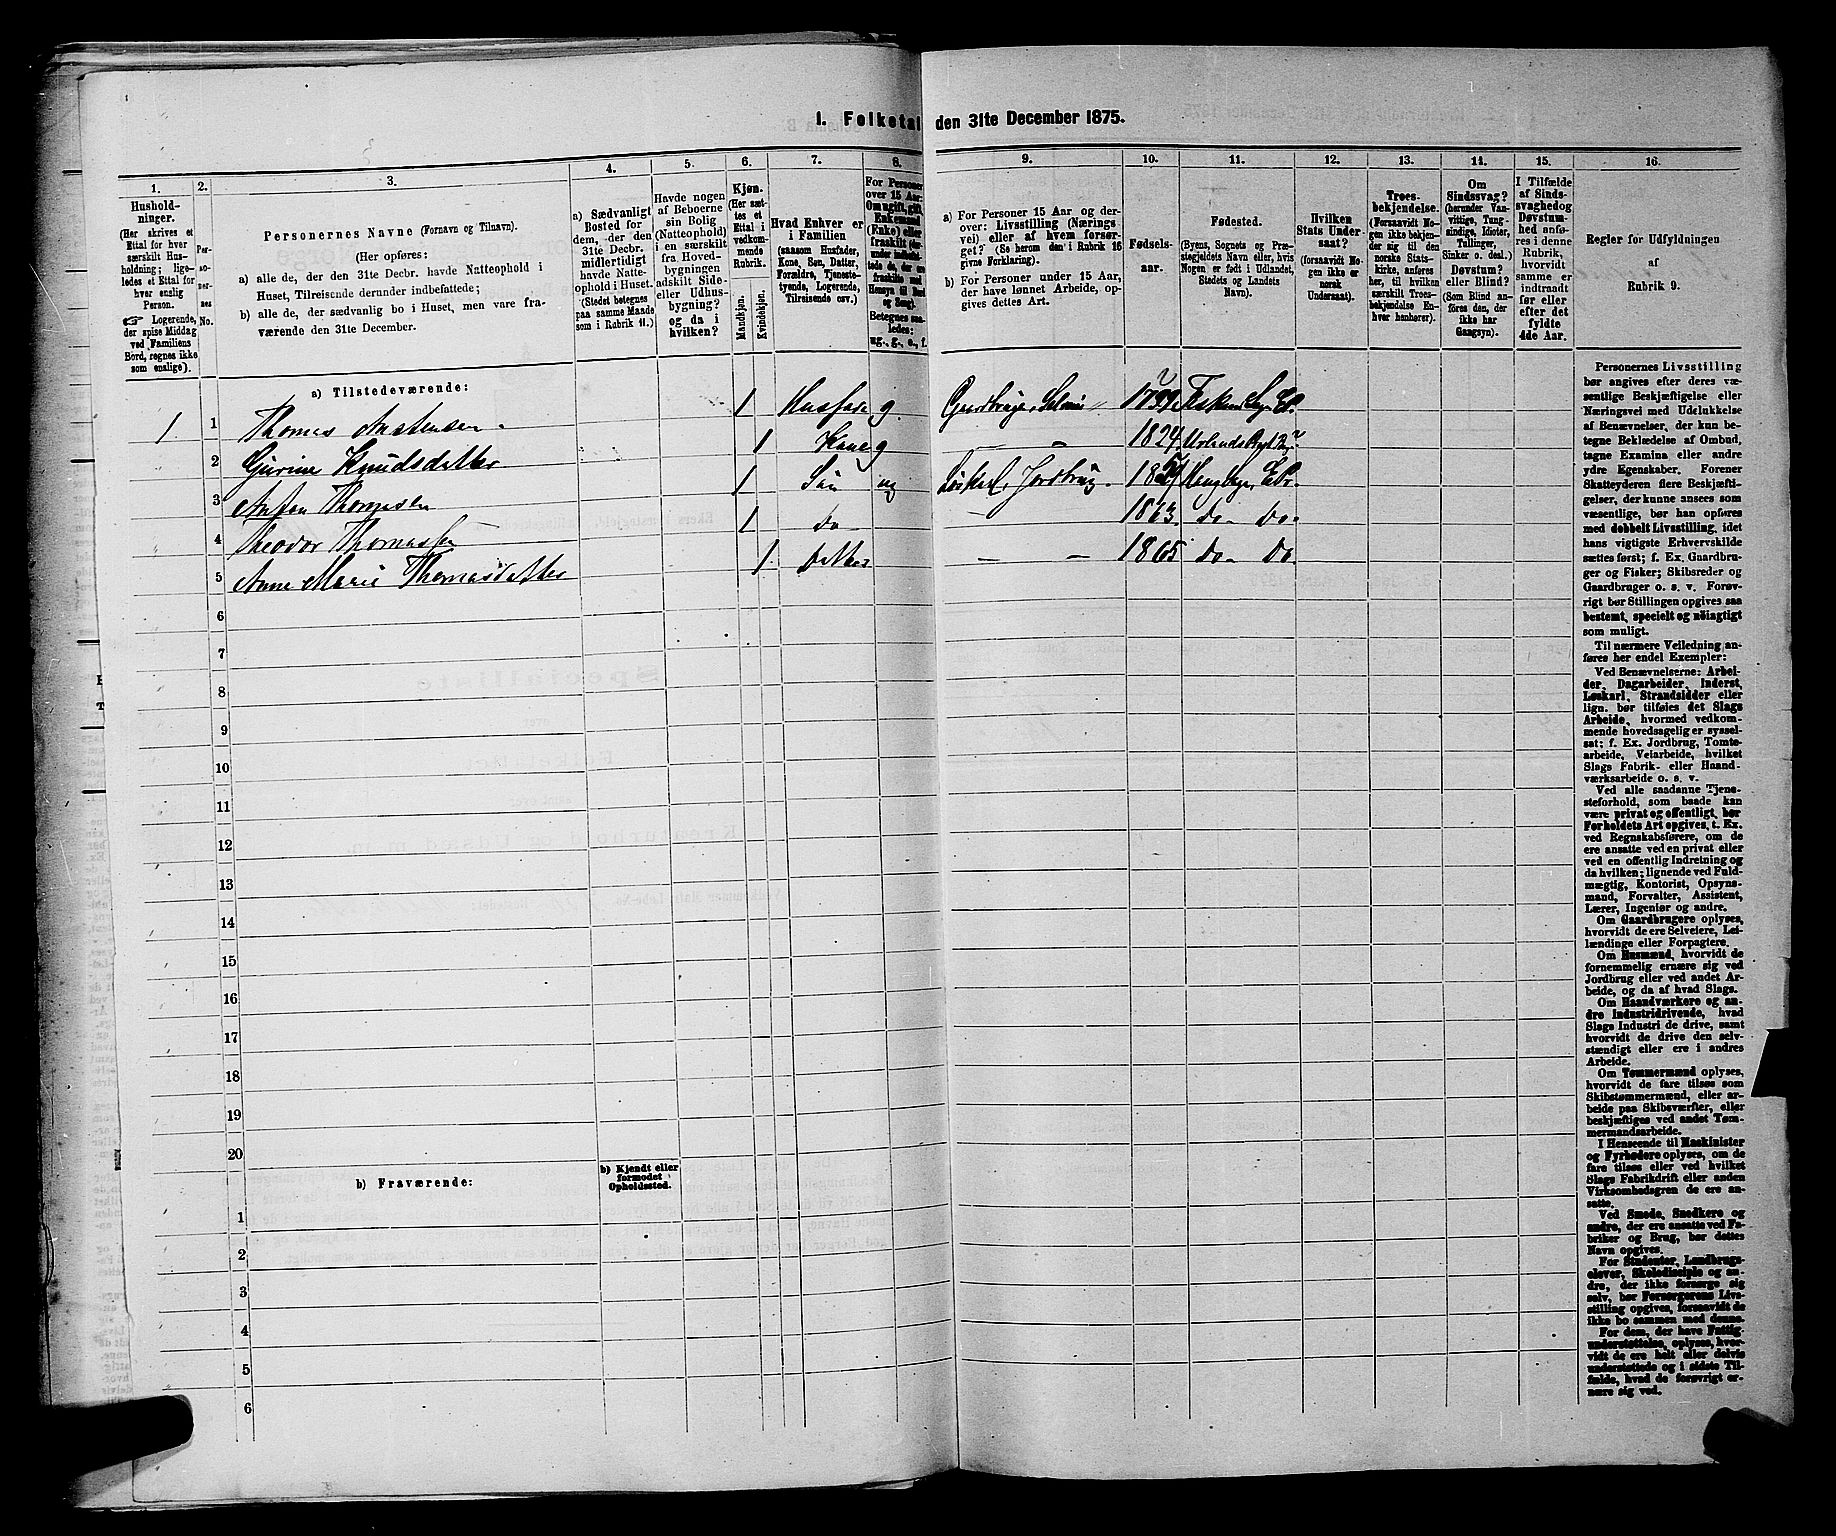 1. Folketal den 31te December 1875.
1. 2. 3. 4. 5. 6. 7. 8. 9. 10. 11. 12. 13. 14. 15. 16.
Hushold-
ninger.
(Her skrives et
Ettal for hver
særskilt Hus-
holdning; lige-
ledes et Ettal for
hver enslig
Person.
☞ Logerende,
der spise Middag
ved Familiens
Bord, regnes ikke
som enslige).
Per-
so-
ner-
nes
No.
Personernes Navne (Fornavn og Tilnavn).
(Her opføres:
a) alle de, der den 31te Decbr. havde Natteophold i
Huset, Tilreisende derunder indbefattede;
b) alle de, der sædvanlig bo i Huset, men vare fra-
værende den 31te December.
a) Sædvanligt
Bosted for
dem, der den
31te Decbr.
midlertidigt
havde Natte-
ophold i Huset.
(Stedet betegnes
paa samme Maade
som i Rubrik 11.)
Havde nogen
af Beboerne
sin Bolig
(Natteophold)
i en særskilt
fra Hoved-
bygningen
adskilt Side-
eller Udhus-
bygning?
og da i
hvilken?
Kjøn.
(Her sæt-
tes et
Ettal i
vedkom-
mende
Rubrik.
Mandkjøn.
Kvindekjøn.
Hvad Enhver er
i Familien
(saasom Husfader,
Kone, Søn, Datter,
Forældre, Tjeneste-
tyende, Logerende,
Tilreisende osv.)
For Personer
over 15 Aar:
Om ugift, gift,
Enkemand
(Enke) eller
fraskilt
Betegnes saa-
ledes:
ug., g., e., f.
a) For Personer 15 Aar og der-
over: Livsstilling (Nærings-
vei) eller af hvem forsør-
get? (Se herom den i Rubrik 16
givne Forklaring).
b) For Personer under 15 Aar,
der have lønnet Arbeide, op-
gives dettes Art.
Fødsels-
aar.
Fødested.
(Byens, Sognets og Præ-
stegjeldets Navn eller, hvis
Nogen er født i Udlandet,
Stedets og Landets
Navn).
Hvilken
Stats Under-
saat?
(forsaavidt No-
gen ikke er
norsk
Undersaat).
Troes-
bekjendelse.
(Forsaavidt No-
gen ikke bekjen-
der sig til den
norske Stats-
kirke, anføres
her, til hvilken
særskilt Troes-
bekjendelse En-
hver henhører).
Om
Sindssvag?
(herunder Van-
vittige, Tung-
sindige, Idioter,
Tullinger,
Sinker o. desl.)
Døvstum?
eller Blind?
(Som Blind an-
føres den, der
ikke har
Gangsyn).
I Tilfælde
af Sinds-
svaghed og
Døvstum-
hed anfø-
res i denne
Rubrik,
hvorvidt
samme er
indtraadt
før eller
efter det
fyldte
4de Aar.
Regler for Udfyldningen
af
Rubrik 9.
a) Tilstedeværende:
1 1 Thomas Anstensen 1 Husfader g. Gaardbruger, Selveier 1799
2 Gurine Knudsdatter 1 Kone g — 1824
3 Anton Thomasen 1 Søn ug Løskarl, Jordbrug. Haug Sogn, E. Pr.
4 Theodor Thomassen 1 Do — 1873. Do — Do.
5 Anne Marie Thomasdatter 1 Datter — — 1865 Do — Do.
6
7
8
9
10
11
12
13
14
15
16
17
18
19
20
b) Fraværende:
b) Kjendt eller
formodet
Opholdssted.
1
2
3
4
5
6
Personernes Livsstilling
bør angives efter deres væ-
sentlige Beskjæftigelse eller
Næringsvei med Udelukkelse
af Benævnelser, der kun be-
tegne Beklædelse af Ombud,
tagne Examina eller andre
ydre Egenskaber. Forener
Skatteyderen flere Beskjæfti-
gelser, der kunne ansees som
væsentlige, bør han opføres
med dobbelt Livsstilling, idet
hans vigtigste Erhvervskilde
sættes først; f. Ex. Gaardbru-
ger og Fisker; Skibsreder og
Gaardbruger o. s. v. Forøv-
rigt bør Stillingen opgives saa
bestemt, specielt og nøiagtigt
som muligt.
Til nærmere Veiledning an-
føres her endel Exempler:
Ved Benævnelserne: Arbei-
der, Dagarbeider, Inderst,
Løskarl, Strandsidder eller
lign. bør tilføies det Slags
Arbeide, hvormed vedkom-
mende hovedsagelig er syssel-
sat; f. Ex. Jordbrug, Tomte-
arbeide, Veiarbeide, hvilket
Slags Fabrik- eller Haand-
værksarbeide o. s. v.
Ved alle saadanne Tjene-
steforhold, som baade kan
være privat og offentligt, bør
Forholdets Art opgives, t. Ex.
ved Regnskabsførere, om de
ere ansatte ved en privat eller
ved en offentlig Indretning og
da hvilken; lignende ved Fuld-
mægtig, Kontorist, Opsyns-
mand, Forvalter, Assistent,
Lærer, Ingeniør og andre.
Om Gaardbrugere oplyses,
hvorvidt de ere Selveiere, Lei-
lændinge eller Forpagtere.
Om Husmænd, hvorvidt de
fornemmelig ernære sig ved
Jordbrug eller ved andet Ar-
beide, og da af hvad Slags.
Om Haandværkere og an-
dre Industridrivende, hvad
Slags Industri de drive, samt
hvorvidt de drive den selv-
stændigt eller ere i andres
Arbeide.
Om Tømmermænd oplyses,
hvorvidt de fare tilsøs som
Skibstømmermænd, eller ar-
beide paa Skibsværfter, eller
beskjæftiges ved andet Tøm-
mermandsarbeide.
I Henseende til Maskinister
og Fyrbødere oplyses, om de
fare tilsøs eller ved hvilket
Slags Fabrikdrift eller anden
Virksomhedsgren de ere an-
satte.
Ved Smede, Snedkere og
andre, der ere ansatte ved Fa-
briker og Brug, bør dettes
Navn opgives.
For Studenter, Landbrugs-
elever, Skoledisciple og an-
dre, der ikke forsørge sig
selv, bør Forsørgerens Livs-
stilling opgives, forsaavidt de
ikke bo sammen med denne.
For dem, der have Fattig-
understøttelse, oplyses, hvor-
vidt de ere helt eller delvis
understøttede og i sidste Til-
fælde, hvad de forøvrigt er-
nære sig ved.